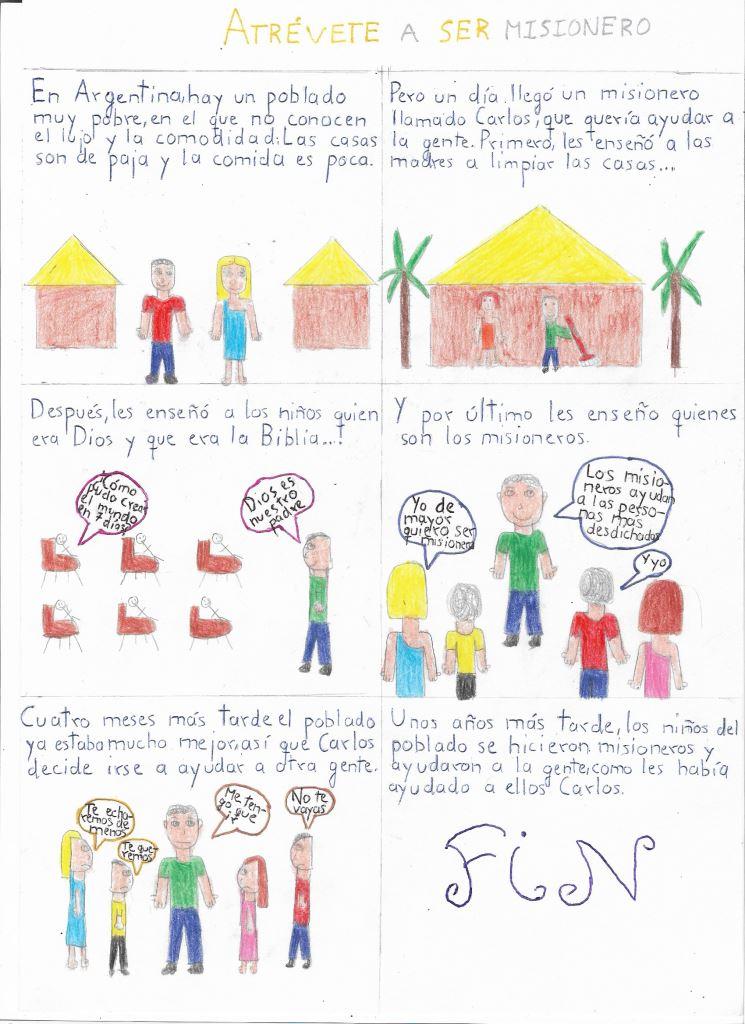 ATRÉVETE A SER MISIONERO
En Argentina, hay un poblado
muy pobre, en el que no conocen
el lujo y la comodidad. Las casas
son de paja y la comida es poca.
Pero un día, llegó un misionero
llamado Carlos, que quería ayudar a
la gente. Primero, les enseñó a las
madres a limpiar las casas...
Después, les enseñó a los niños quien
era Dios y que era la Biblia...!
¿Cómo
pudo crear
el mundo
en 7 días?
Dios es
nuestro
padre
Y por último les enseño quienes
son los misioneros.
Yo de
mayor
quiero ser
misionera
Los misio-
neros ayudan
a las perso-
nas mas
desdichadas
y yo
Cuatro meses más tarde el poblado
ya estaba mucho mejor, así que Carlos
decide irse a ayudar a otra gente.
Te echa-
remos de
menos
Te que-
remos
Me ten-
go que
ir
No te
vayas
Unos años más tarde, los niños del
poblado se hicieron misioneros y
ayudaron a la gente, como les había
ayudado a ellos Carlos.
FiN